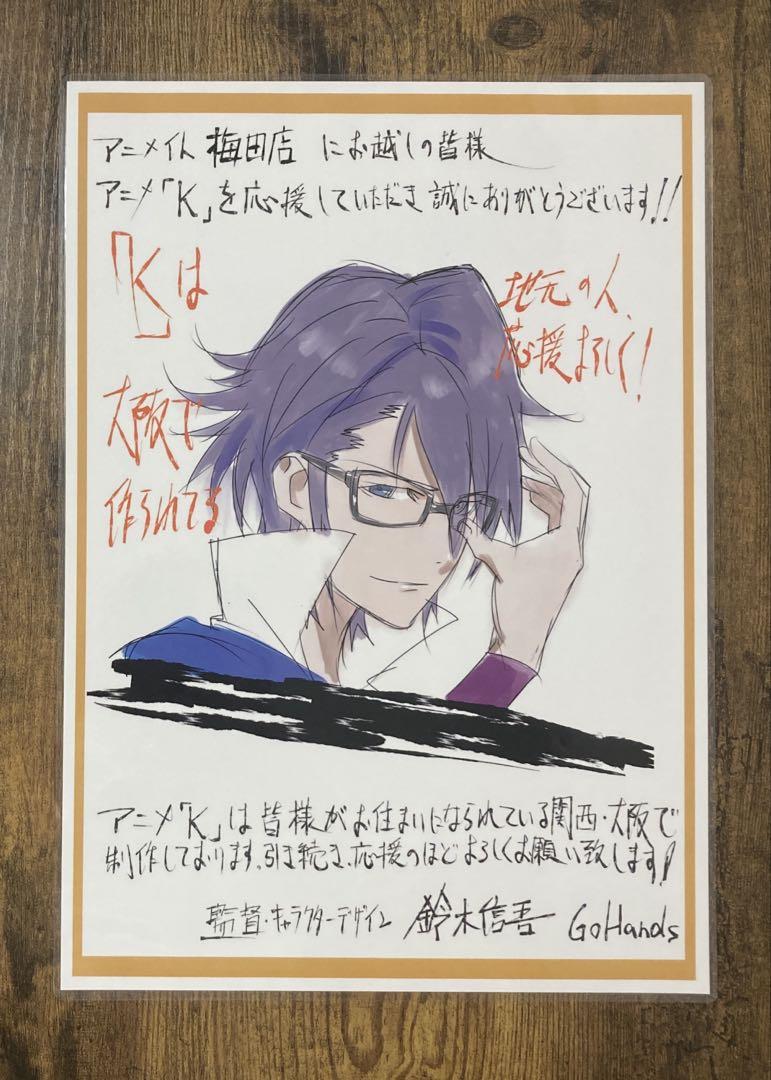 アニメイト 梅田店 にお越しの皆様
アニメ「K」を応援していただき誠にありがとうございます!!
「K」は
大阪で
作られてる
地元の人、
応援よろしく!
アニメ「K」は皆様がお住まいになられている関西・大阪で
制作しております。引き続き、応援のほどよろしくお願い致します!
監督・キャラクターデザイン 鈴木信吾 GoHands